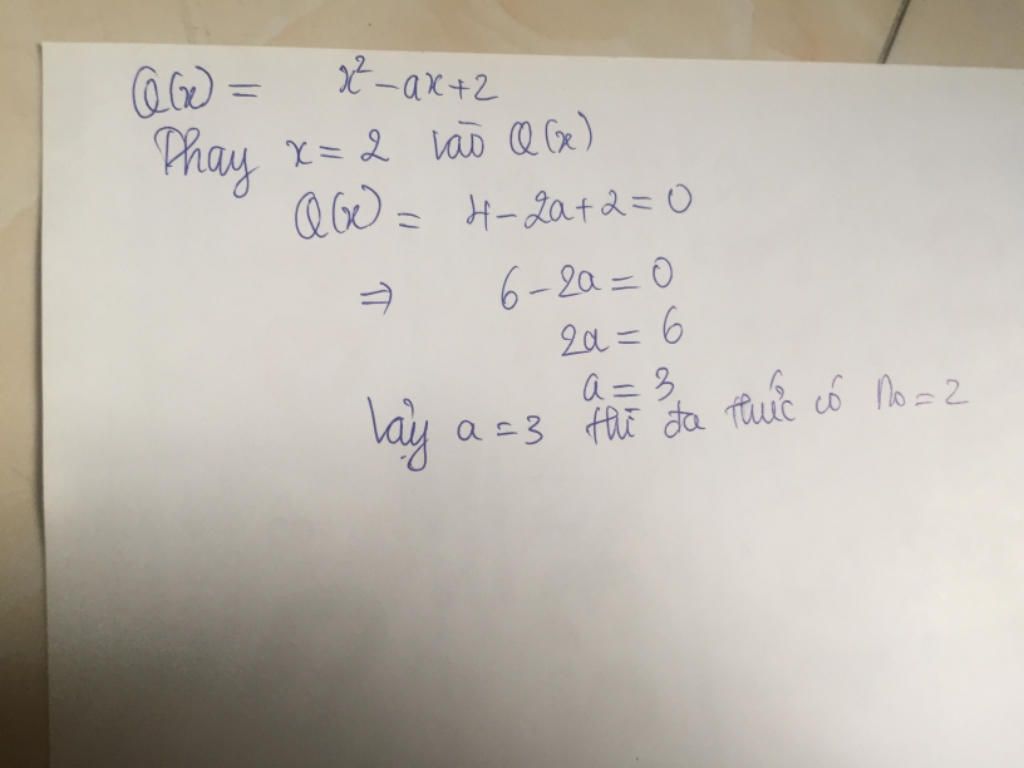 Q(x) = x² - ax + 2
Thay x = 2 vào Q(x)
Q(x) = 4 - 2a + 2 = 0
⇒ 6 - 2a = 0
2a = 6
a = 3
Vậy a = 3 thì đa thức có no = 2